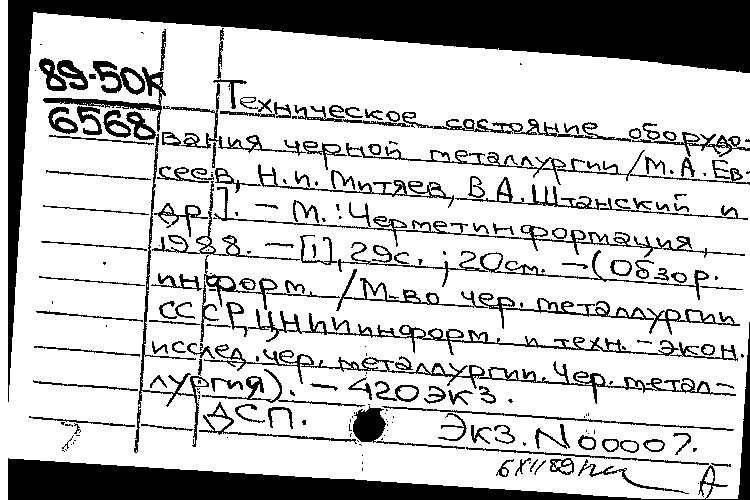 89-50К
6568
Техническое состояние оборудо-
вания черной металлургии /М.А. Ев-
сеев, Н.П. Митяев, В.А. Штанский и
др]. — М.: Черметинформация,
1988. — [1], 29с. ; 20см. — (Обзор.
информ. / М-во чер. металлургии
СССР, ЦНИИинформ. и техн. - экон.
исслед. чер. металлургии. Чер. метал-
лургия). — 420 экз.
ДСП.
Экз. N 00007.
6 XII 89